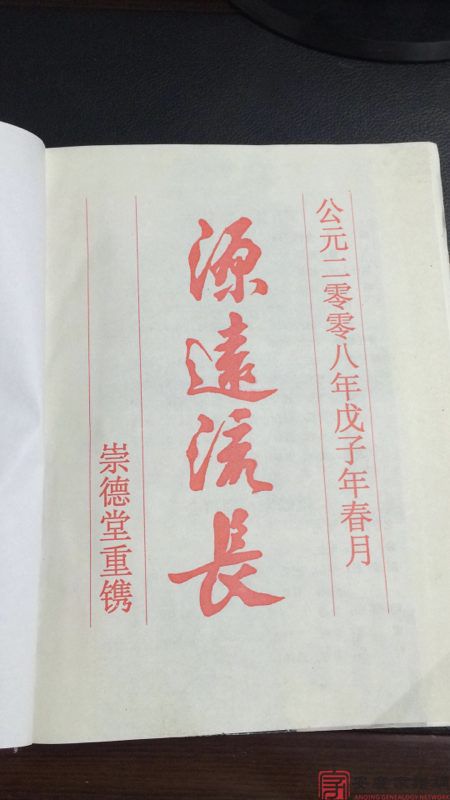 公元二零零八年戊子年春月
源遠流長
崇德堂重镌
ANQING GENEALOGY NETWORK